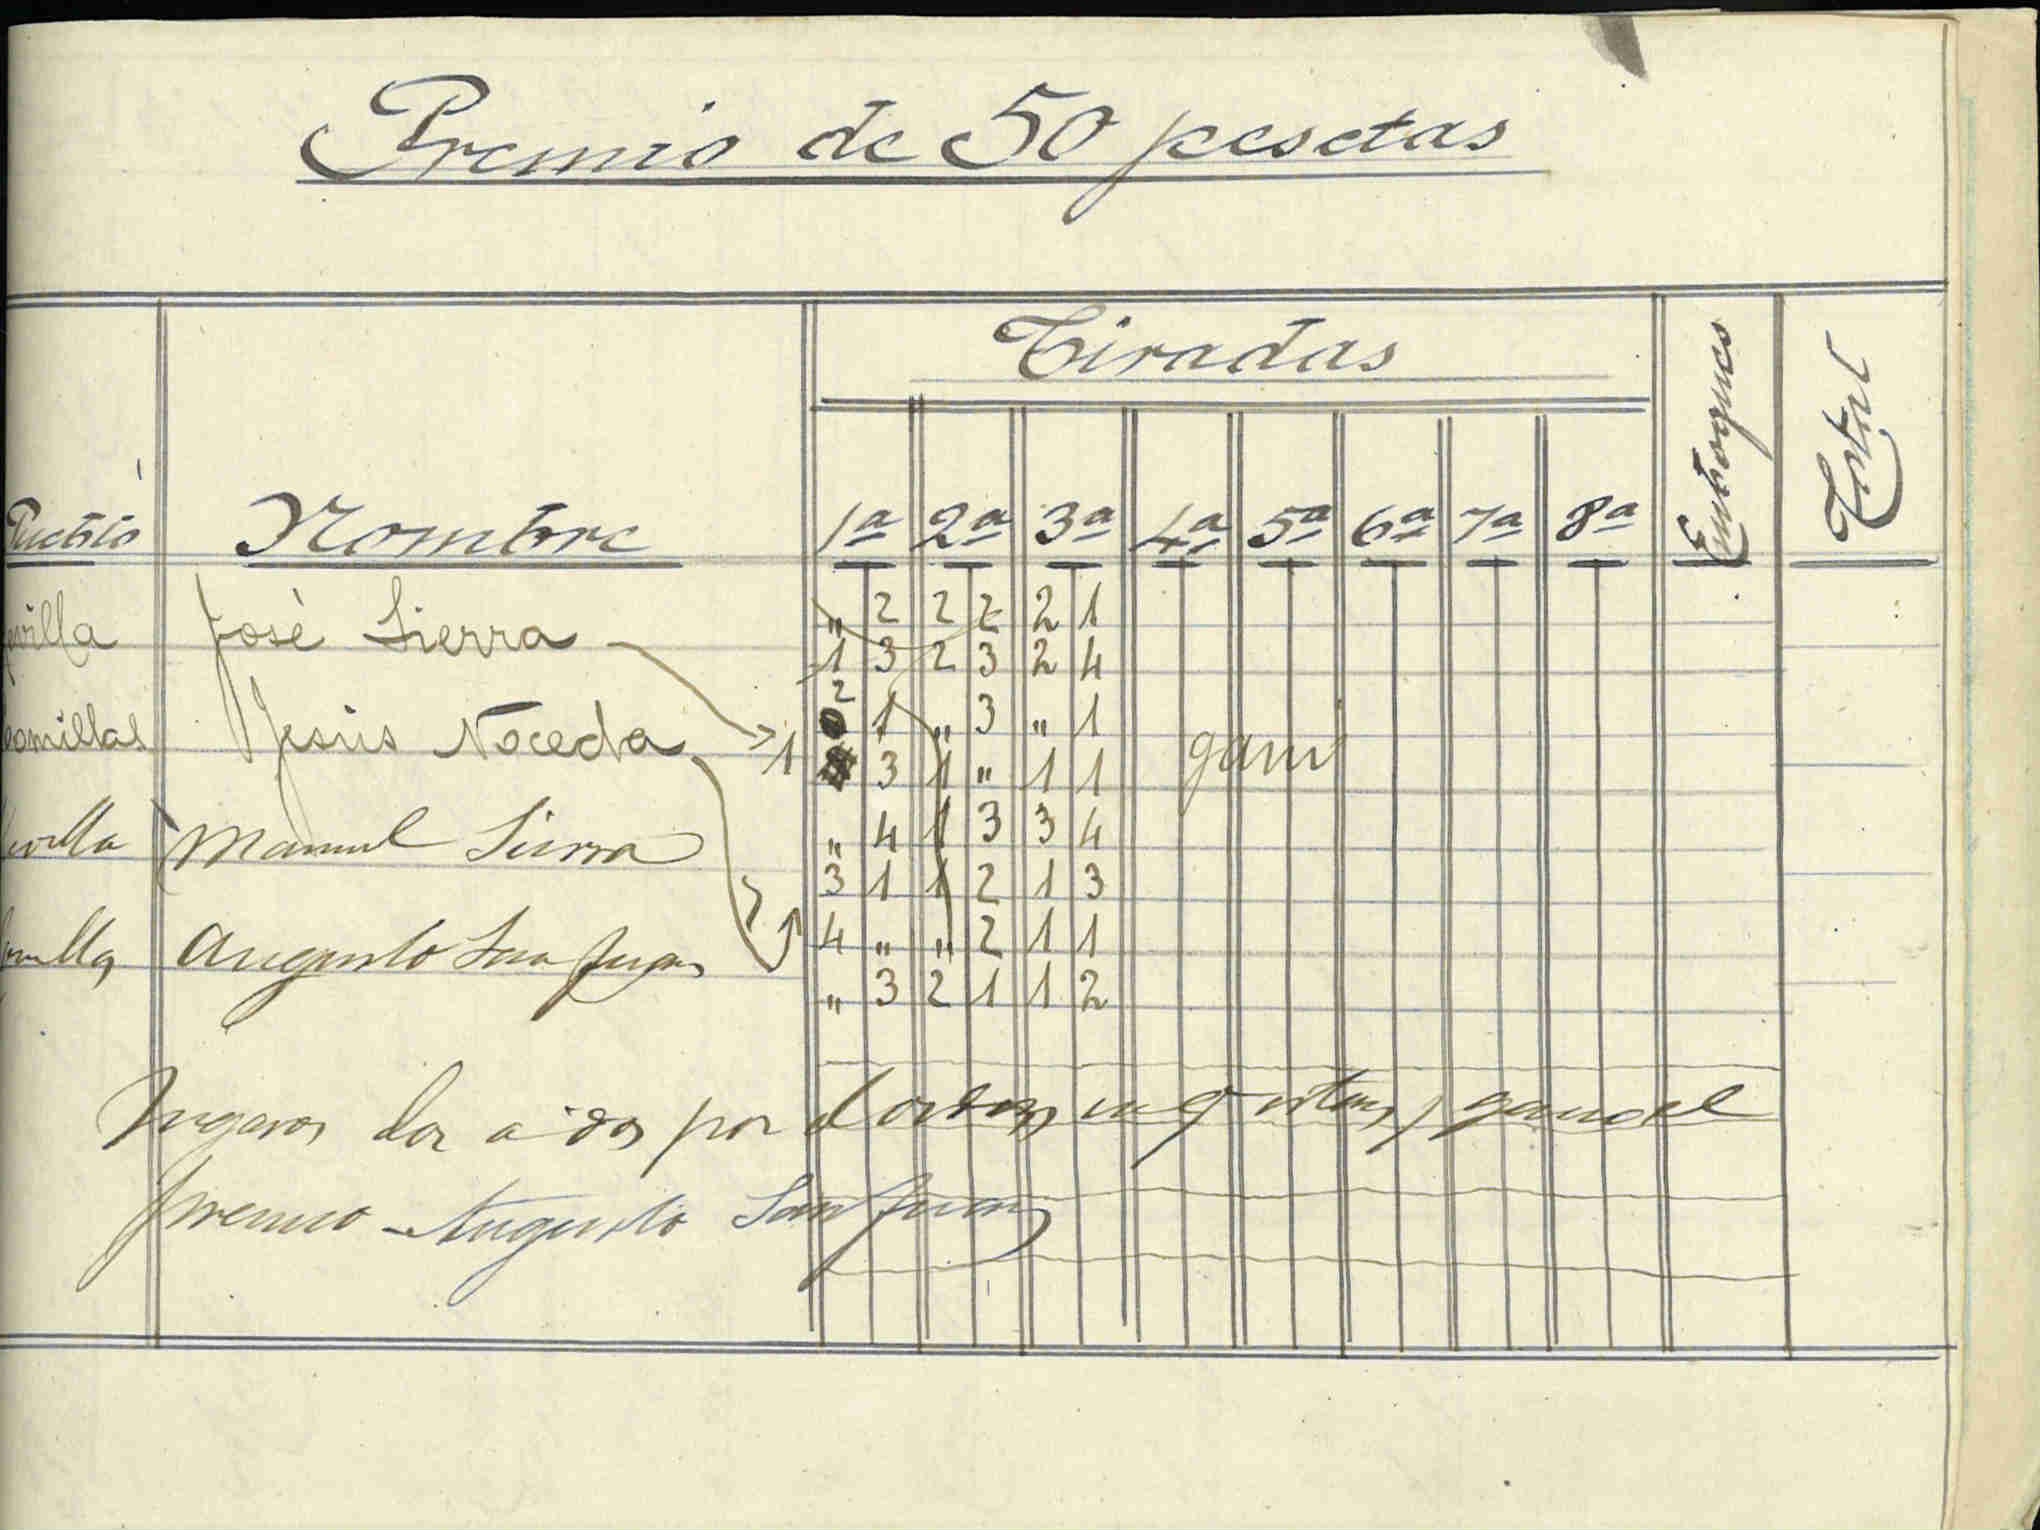 Premio de 50 pesetas
Tiradas
Pueblo Nombre 1ª 2ª 3ª 4ª 5ª 6ª 7ª 8ª Emboques Total
José Sierra
„ 2 2 2 2 1
1 3 2 3 2 4
Jesús Noceda
2 1 „ 3 „ 1
1 3 1 „ 1 1 ganó
Manuel Sierra
„ 4 1 3 3 4
3 1 1 2 1 3
Augusto San Juan
4 „ „ 2 1 1
„ 3 2 1 1 2
Jugaron dos a dos por gana el
premio Augusto San Juan